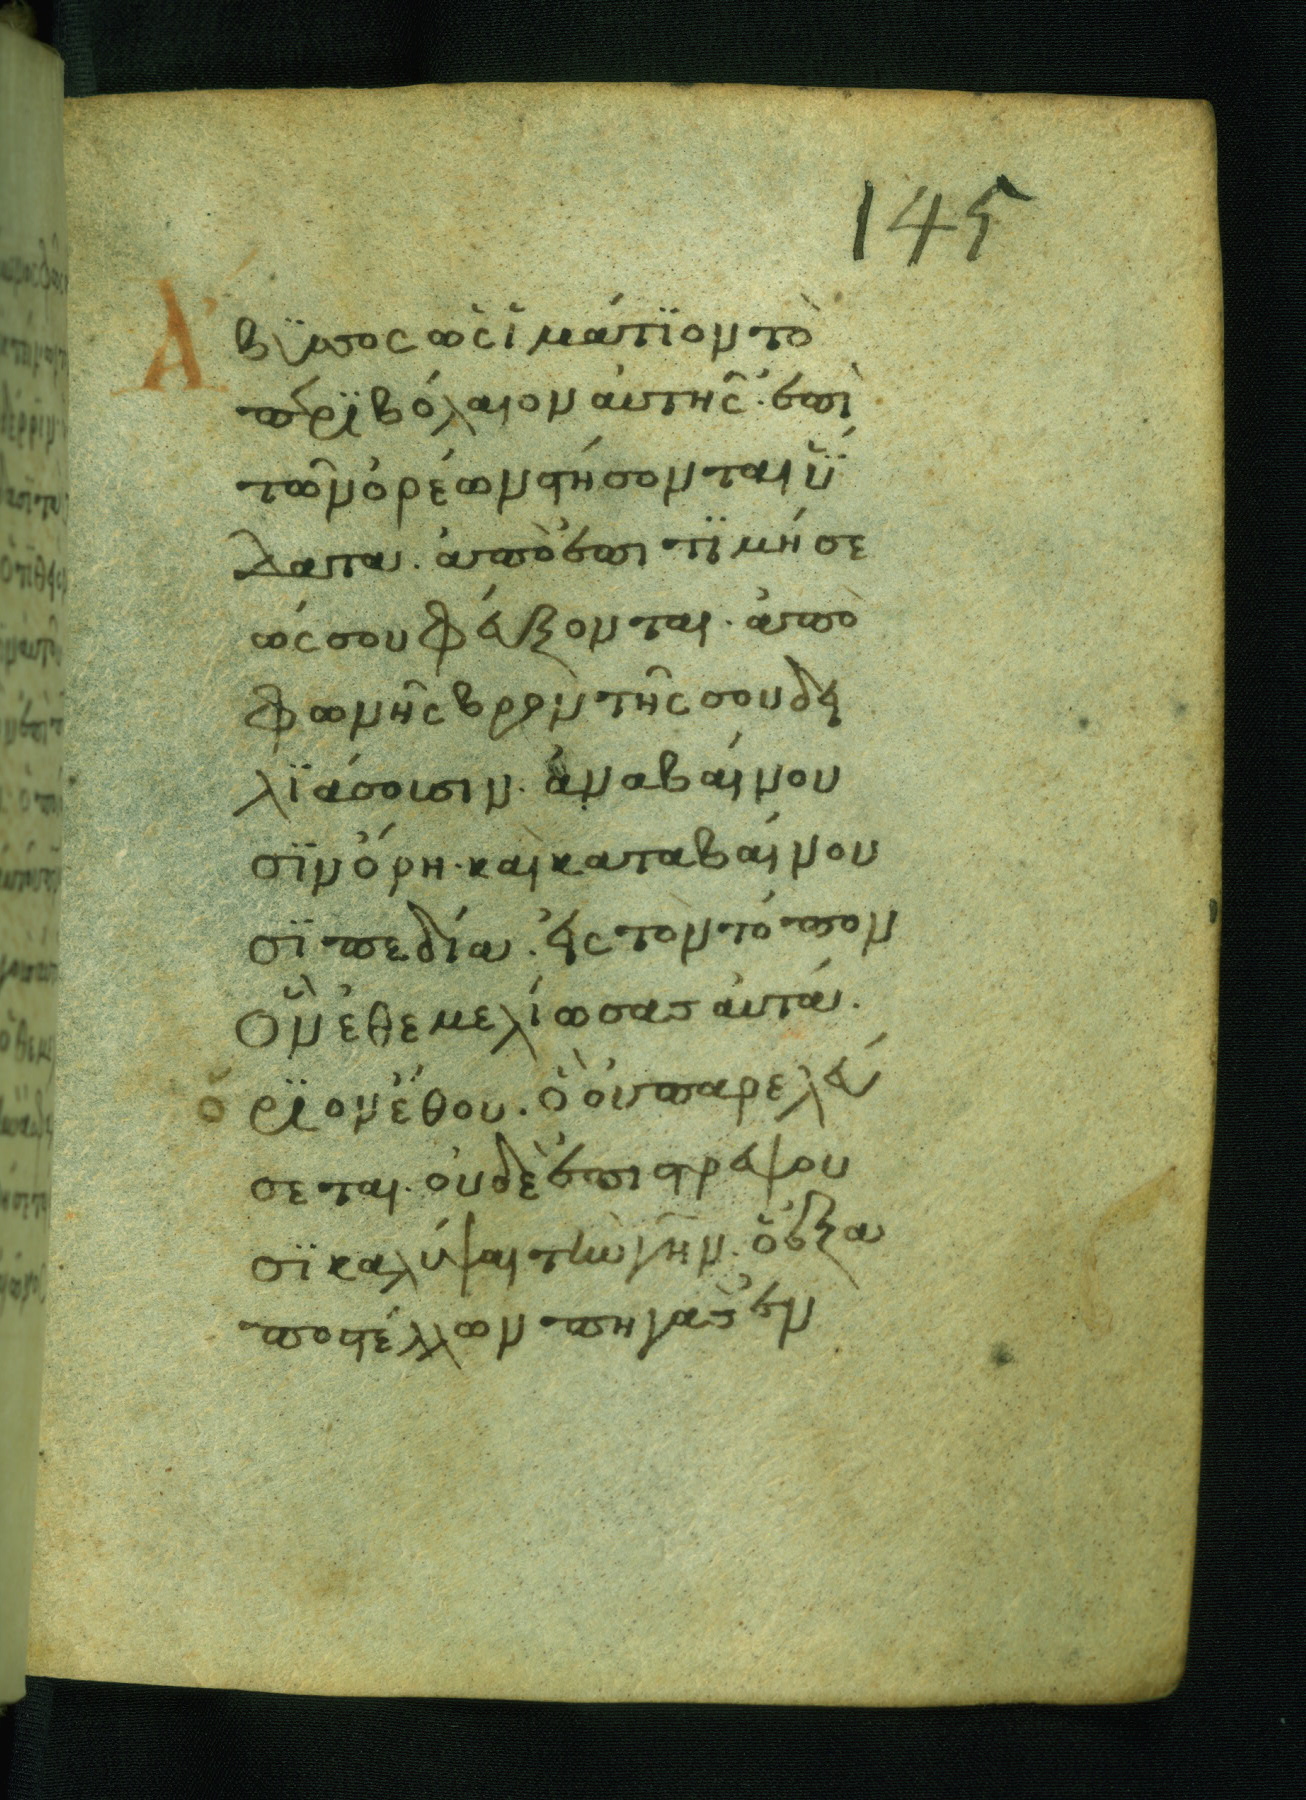 145
Ἄβϋσσος ὡς ἱμάτϊον τὸ
περϊβόλαιον ἀυτῆς· ἐπὶ
τῶν ὀρέων στήσονται ὕ
δατα. ἀπὸ ἐπιτϊμήσε
ώς σου φεύξονται. ἀπὸ
φωνῆς βροντῆς σου δει
λϊάσουσιν. ἀναβαίνου
σϊν ὄρη. καὶ καταβαίνου
σϊ πεδία. εἰς τὸν τόπον
ὃν ἐθεμελίωσας ἀυτά.
ὅρϊον ἔθου. ὃ ὀυ παρελεύ
σεται. ὀυδὲ ἐπιστρέψου
σϊ καλύψαι τὴν γῆν. ὁ ἐξα
ποστέλλων πηγὰς ἐν